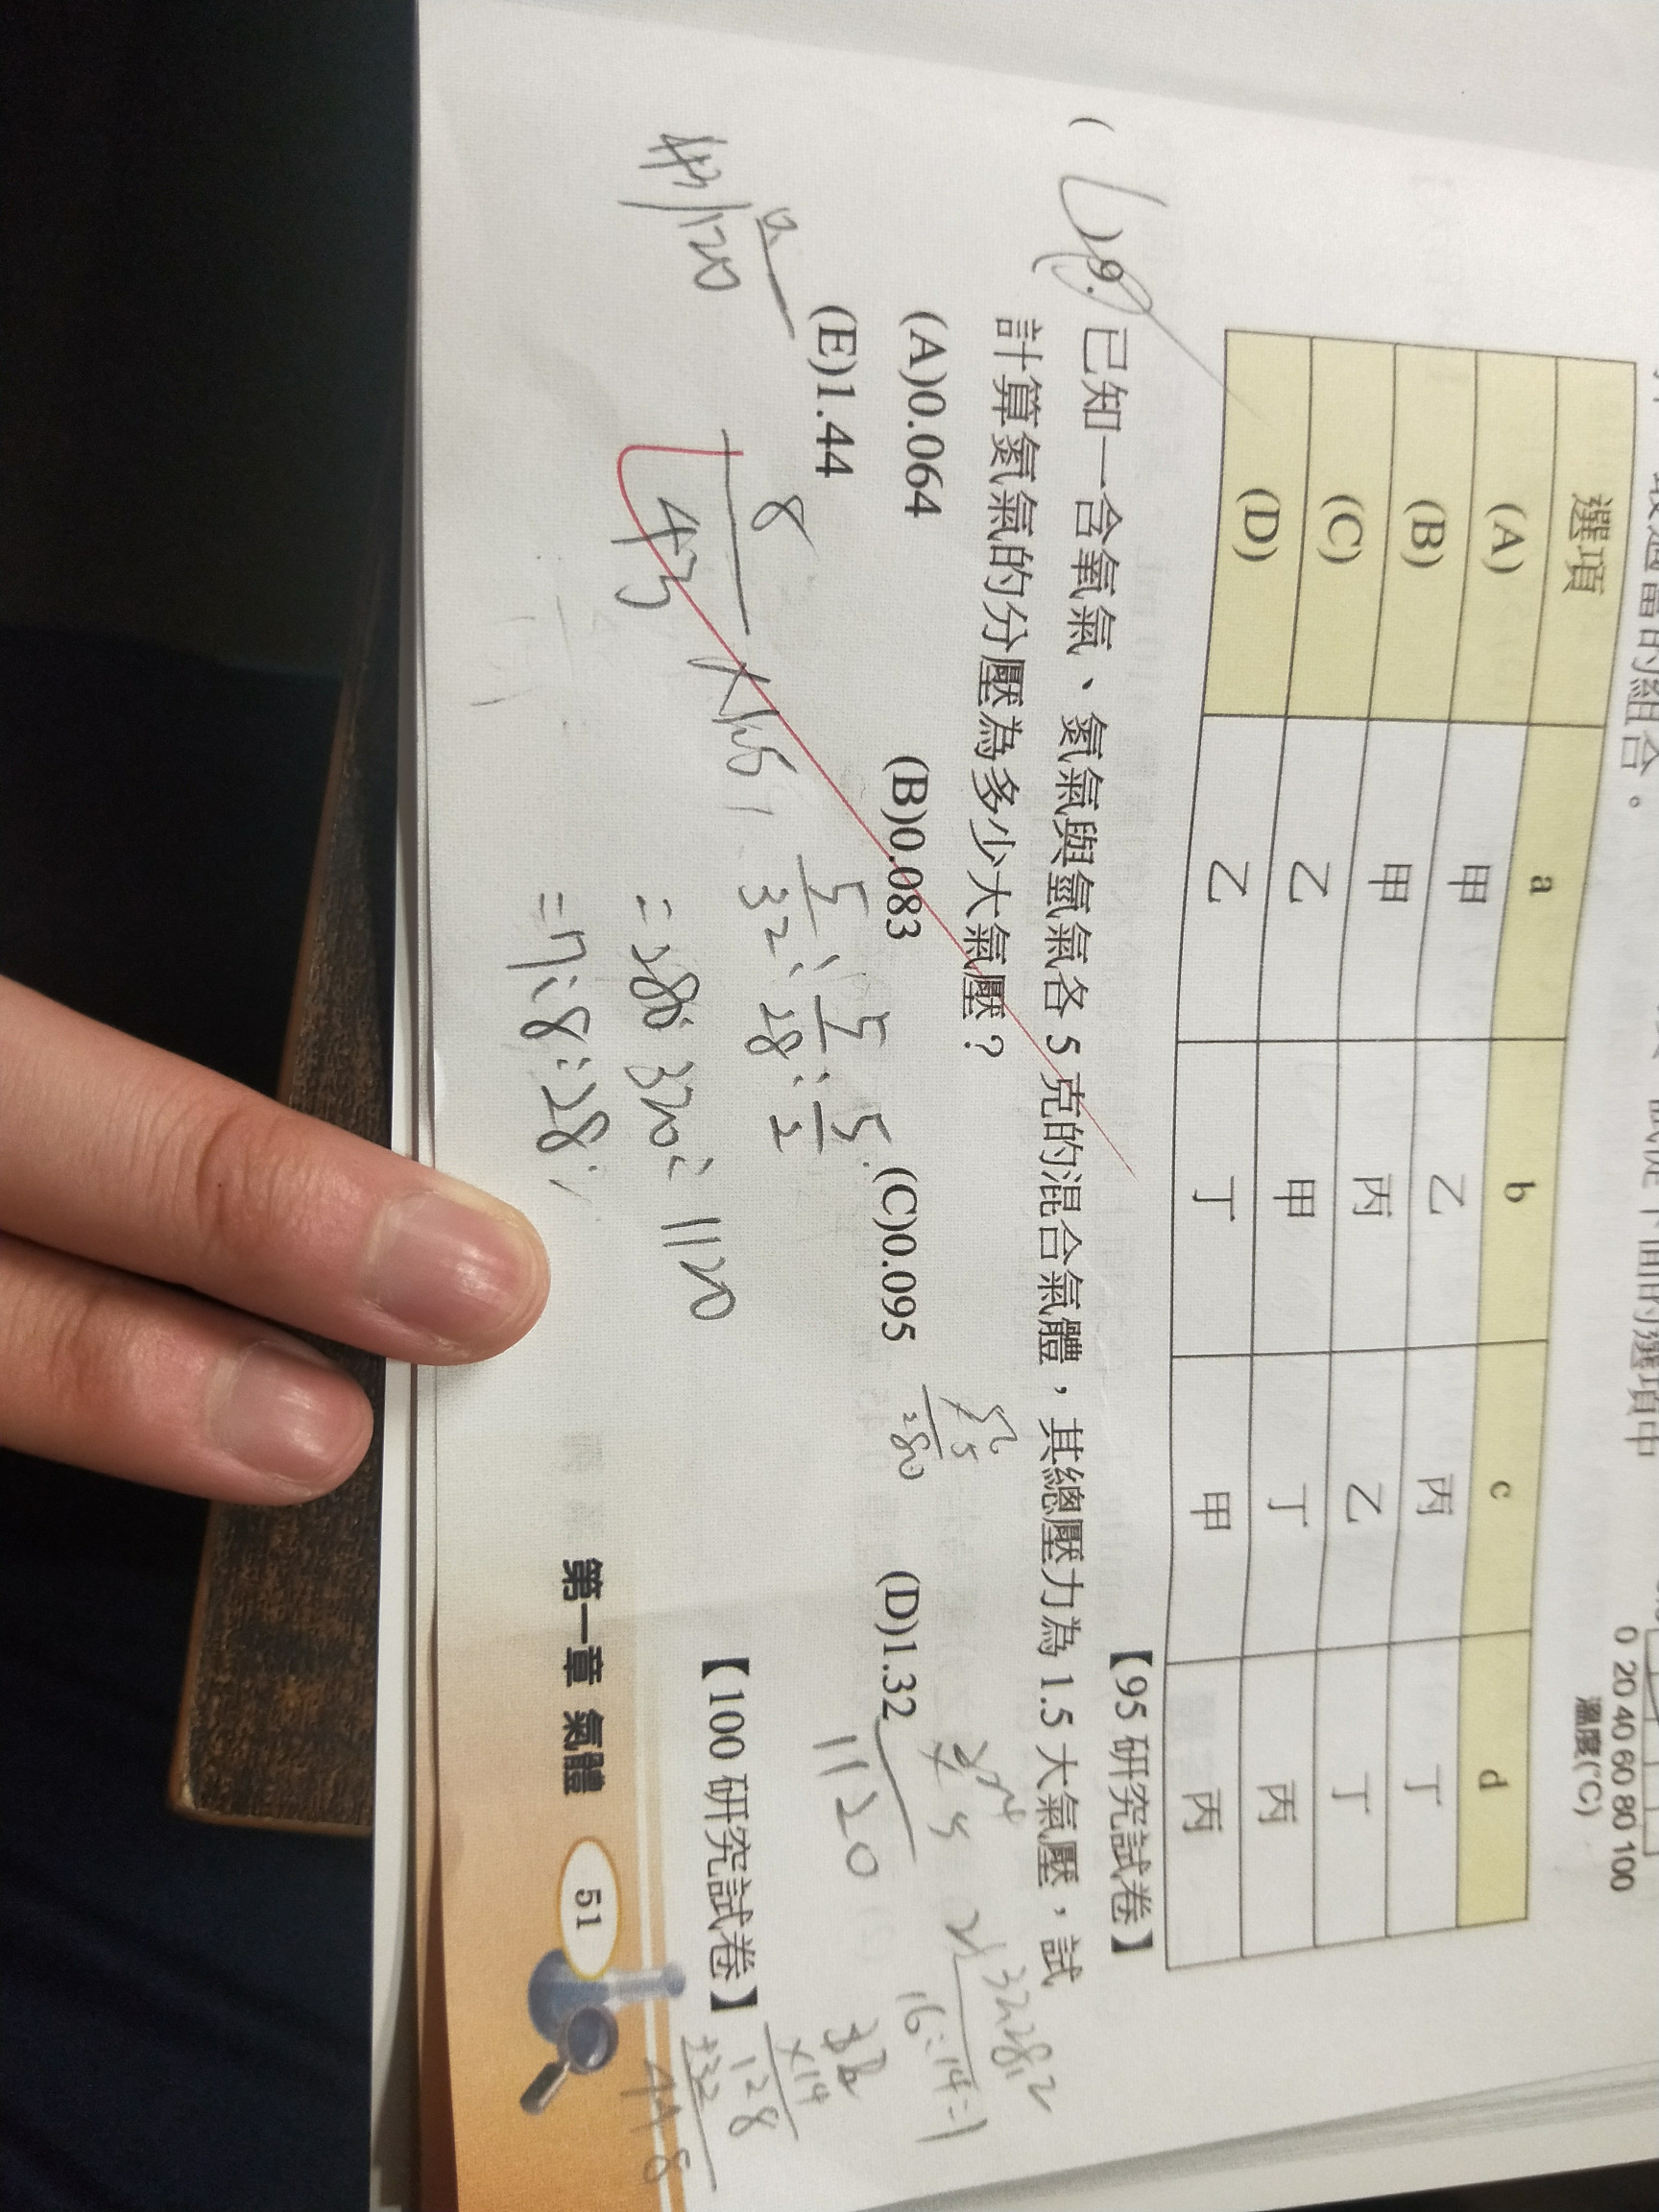 最適當的組合。
下面的選項中
0 20 40 60 80 100
溫度(°C)
選項 a b c d
(A) 甲 乙 丙 丁
(B) 甲 丙 乙 丁
(C) 乙 甲 丁 丙
(D) 乙 丁 甲 丙
【95 研究試卷】
( )9. 已知一含氧氣、氮氣與氫氣各 5 克的混合氣體，其總壓力為 1.5 大氣壓，試
計算氮氣的分壓為多少大氣壓？
(A)0.064 (B)0.083 (C)0.095 (D)1.32
(E)1.44
【100 研究試卷】
8/43 ×1.5
43/120
5/32 : 5/28 : 5/2
= 280: 320: 1120
= 7:8:28
1120
2 32 28 2
16:14:1
×14
128
+32
448
第一章 氣體 51